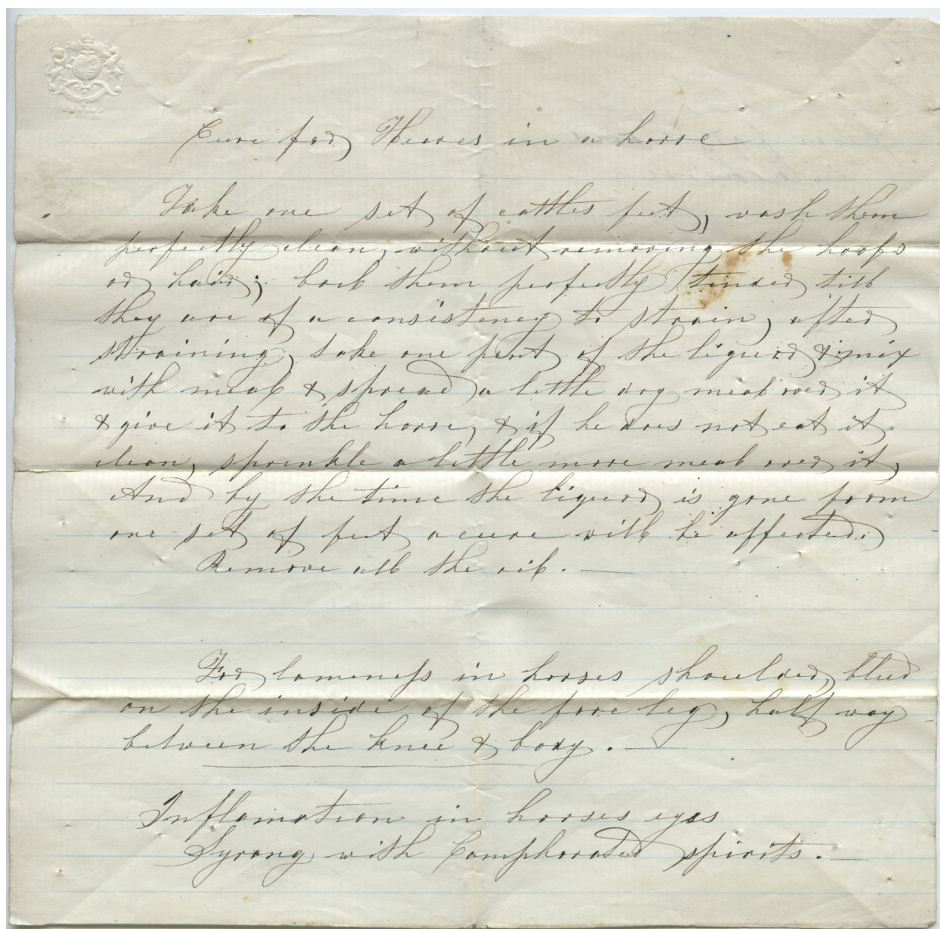 Cure for Heaves in a horse
Take one set of cattles feet, wash them
perfectly clean, without removing the hoofs
or hair; boil them perfectly tinder till
they are of a consistency to strain, after
straining, take one pint of the liquor & mix
with meal & spread a little dry meal over it
& give it to the horse, & if he does not eat it
clean, sprinkle a little more meal over it,
And by the time the liquor is gone from
one set of feet a cure will be affected.
Remove all the oil. —
For lameness in horses shoulder, bleed
on the inside of the fore leg, half way
between the knee & body. —
Inflamation in horses eyes
Syrong with Camphorated spirits. —